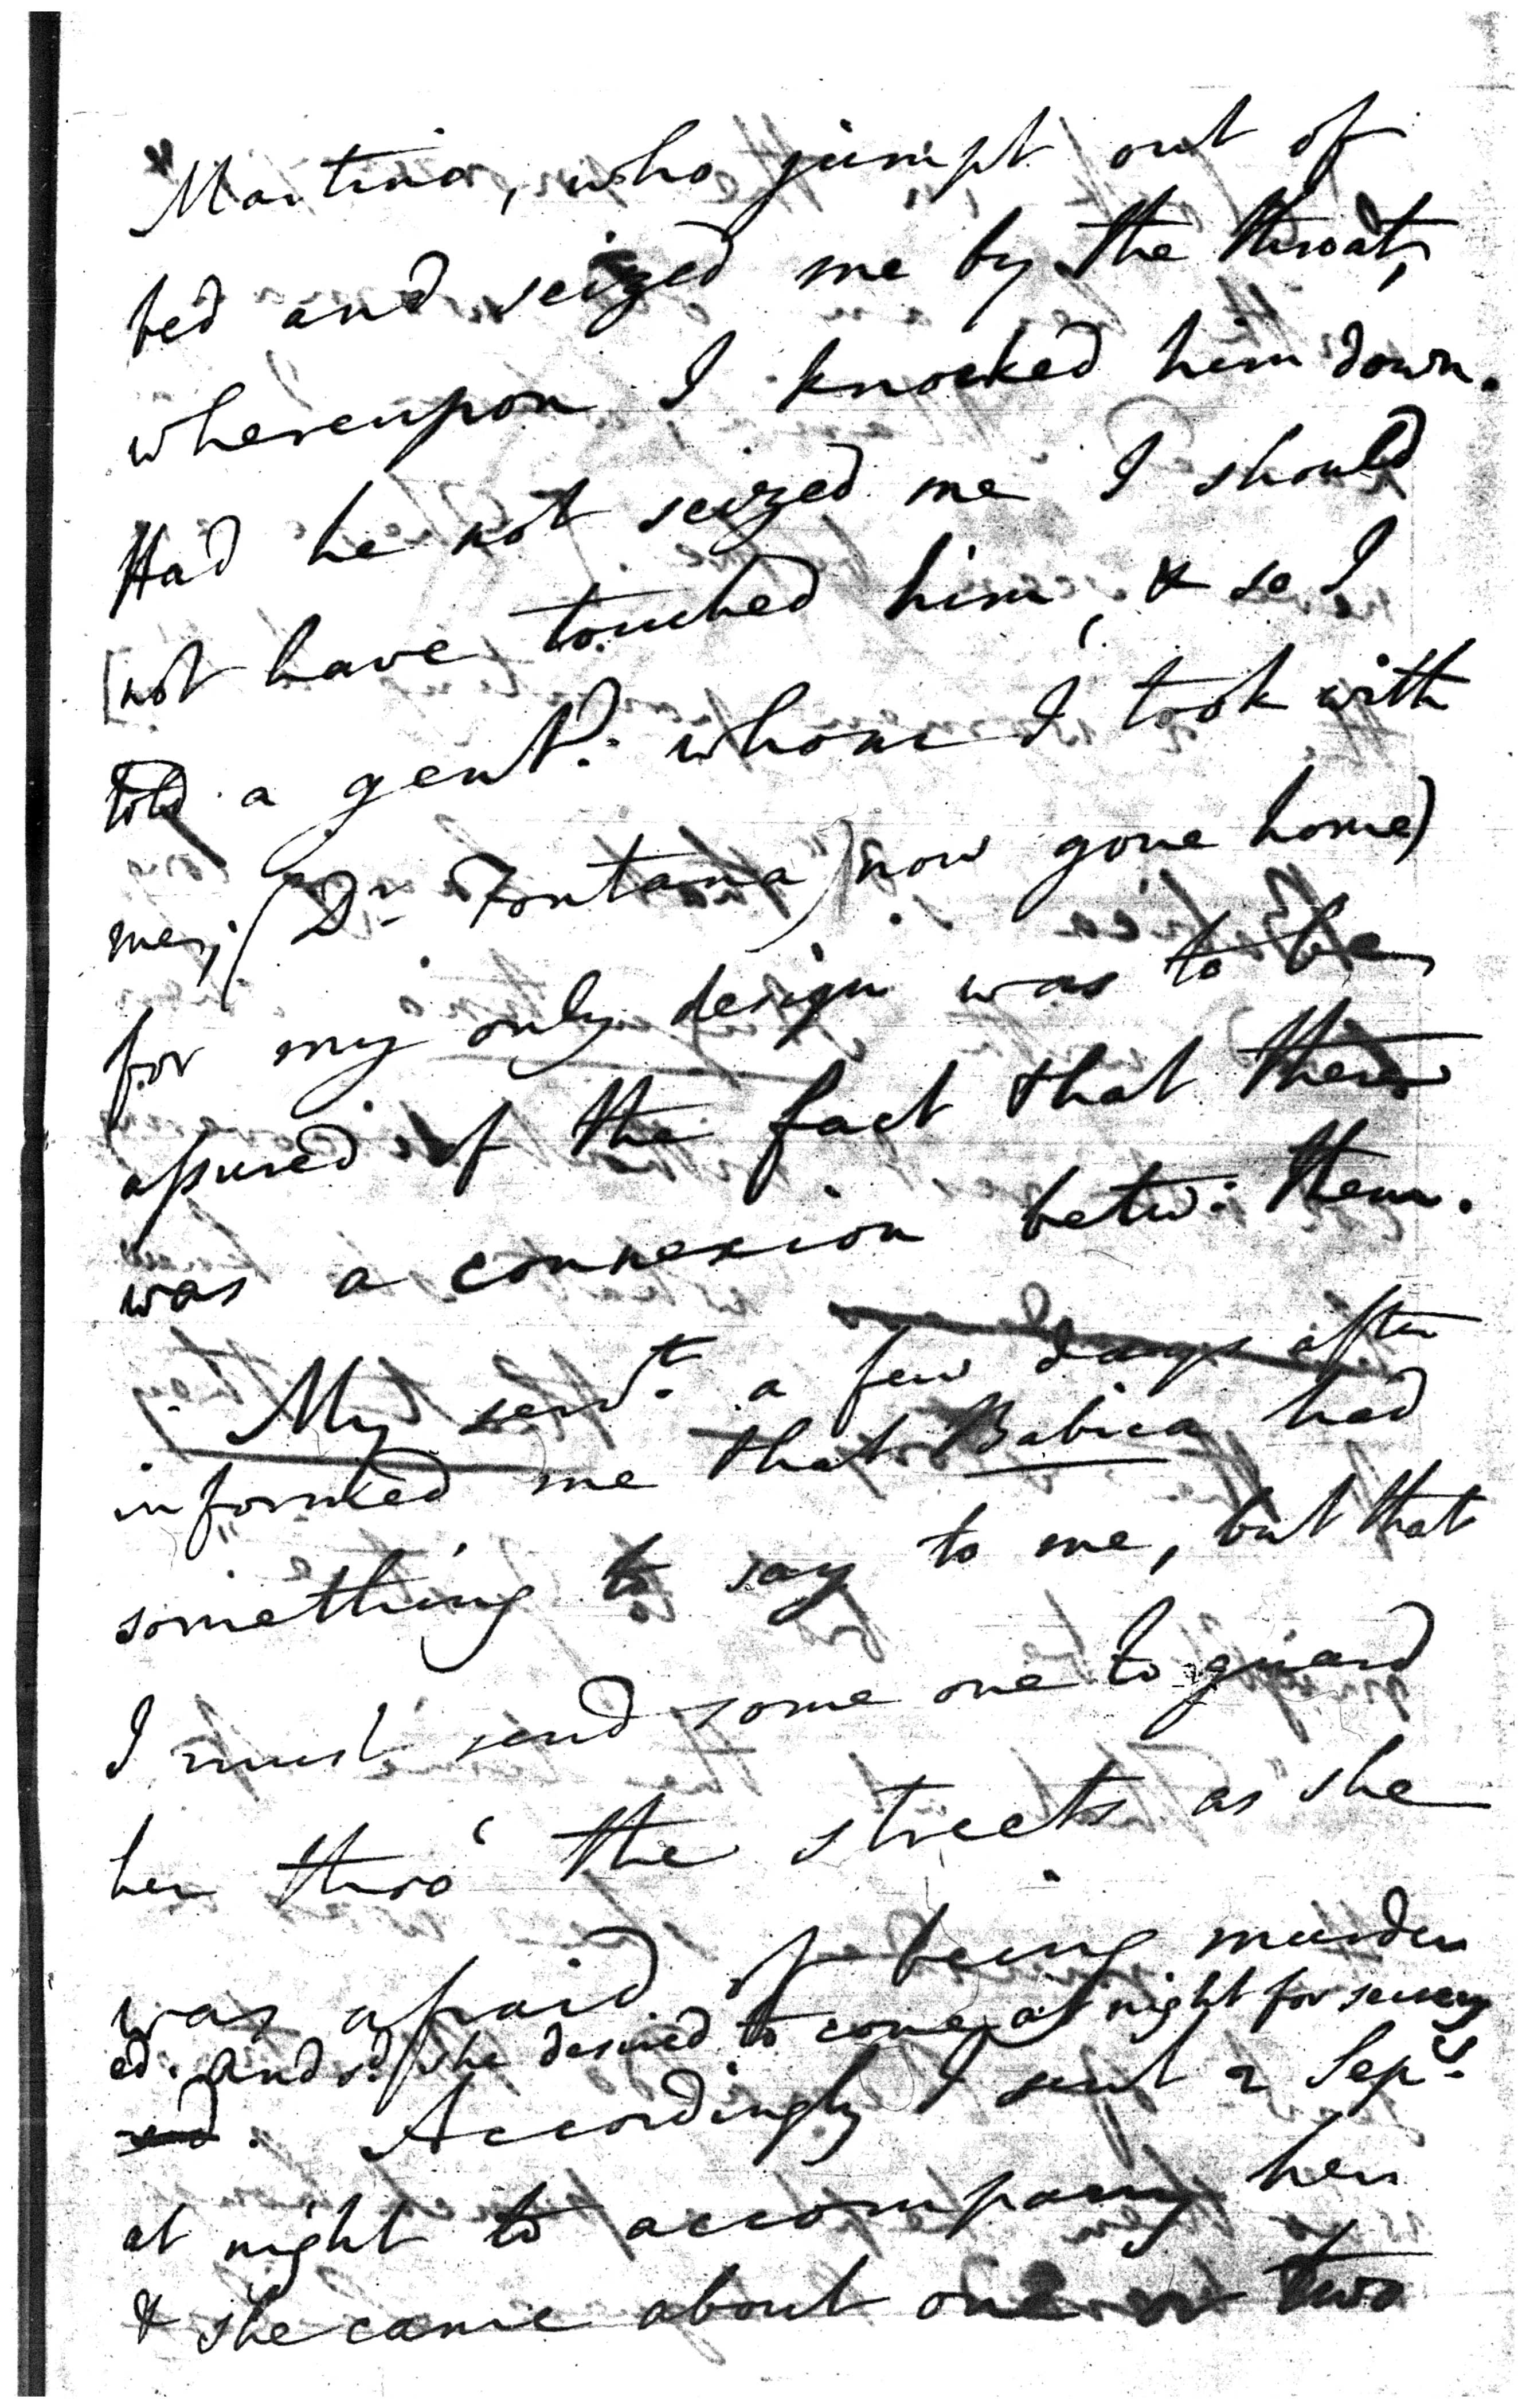 Martino, who jumpt out of
bed and seized me by the throat,
whereupon I knocked him down.
Had he not seized me I should
not have touched him, & so I
told a gent<sup>n</sup>. whom I took with
me, (Dr Fontana now gone home)
for my only design was to be
assured of the fact that there
was a connexion betw: them.
My serv<sup>t</sup>. a few days after
informed me that Babica had
something to say to me, but that
I must send some one to guard
her thro' the streets as she
was afraid of being murder
ed. And sd. she desired to come at night for
ed. Accordingly I sent 2 Sep<sup>s</sup>.
at night to accompany her
& she came about one or two